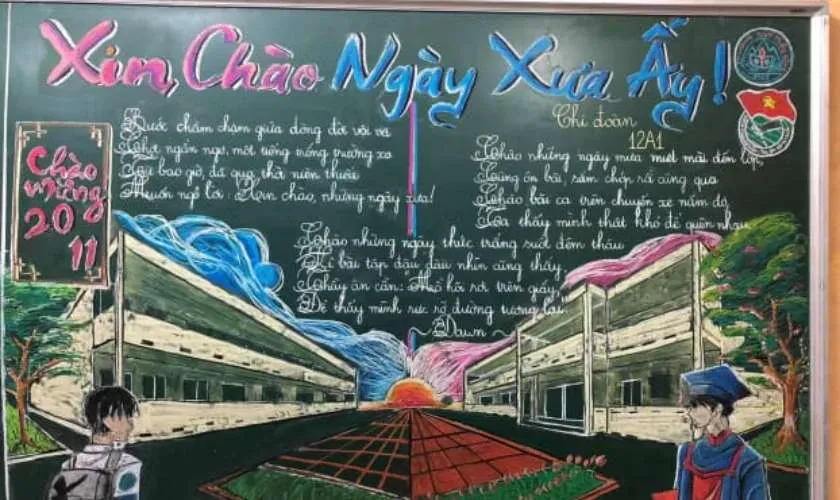 Xin Chào Ngày Xưa Ấy!
Chi đoàn
12A1
Chào
mừng
20
11
Bước chầm chậm giữa dòng đời vội vã
Chợt ngẩn ngơ, một tiếng trống trường xa
bao giờ, đã qua, thời niên thiếu
Muốn ngỏ lời: Xin chào, những ngày xưa!
Chào những ngày mưa miệt mài đến lớp,
Cùng ôn bài, sớm chốn rồi cùng qua
Chào bài ca trên chuyến xe năm đó,
thấy mình thật khó để quên nhau
Chào những ngày thức trắng suốt đêm thâu
Vì bài tập đâu đâu nhìn cũng thấy,
Thấy ân cần: Mồ hôi rơi trên giấy,
Để thấy mình rực rỡ đường tương lai.
~ Dawn ~